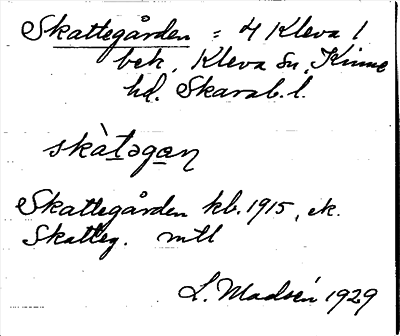 Skattegården = 4 Kleva 1
bek, Kleva sn, Kinne
hd. Skarab. l.
skàtəgan
Skattegården kb. 1915, ek.
Skatteg. mtl
L. Madsén 1929